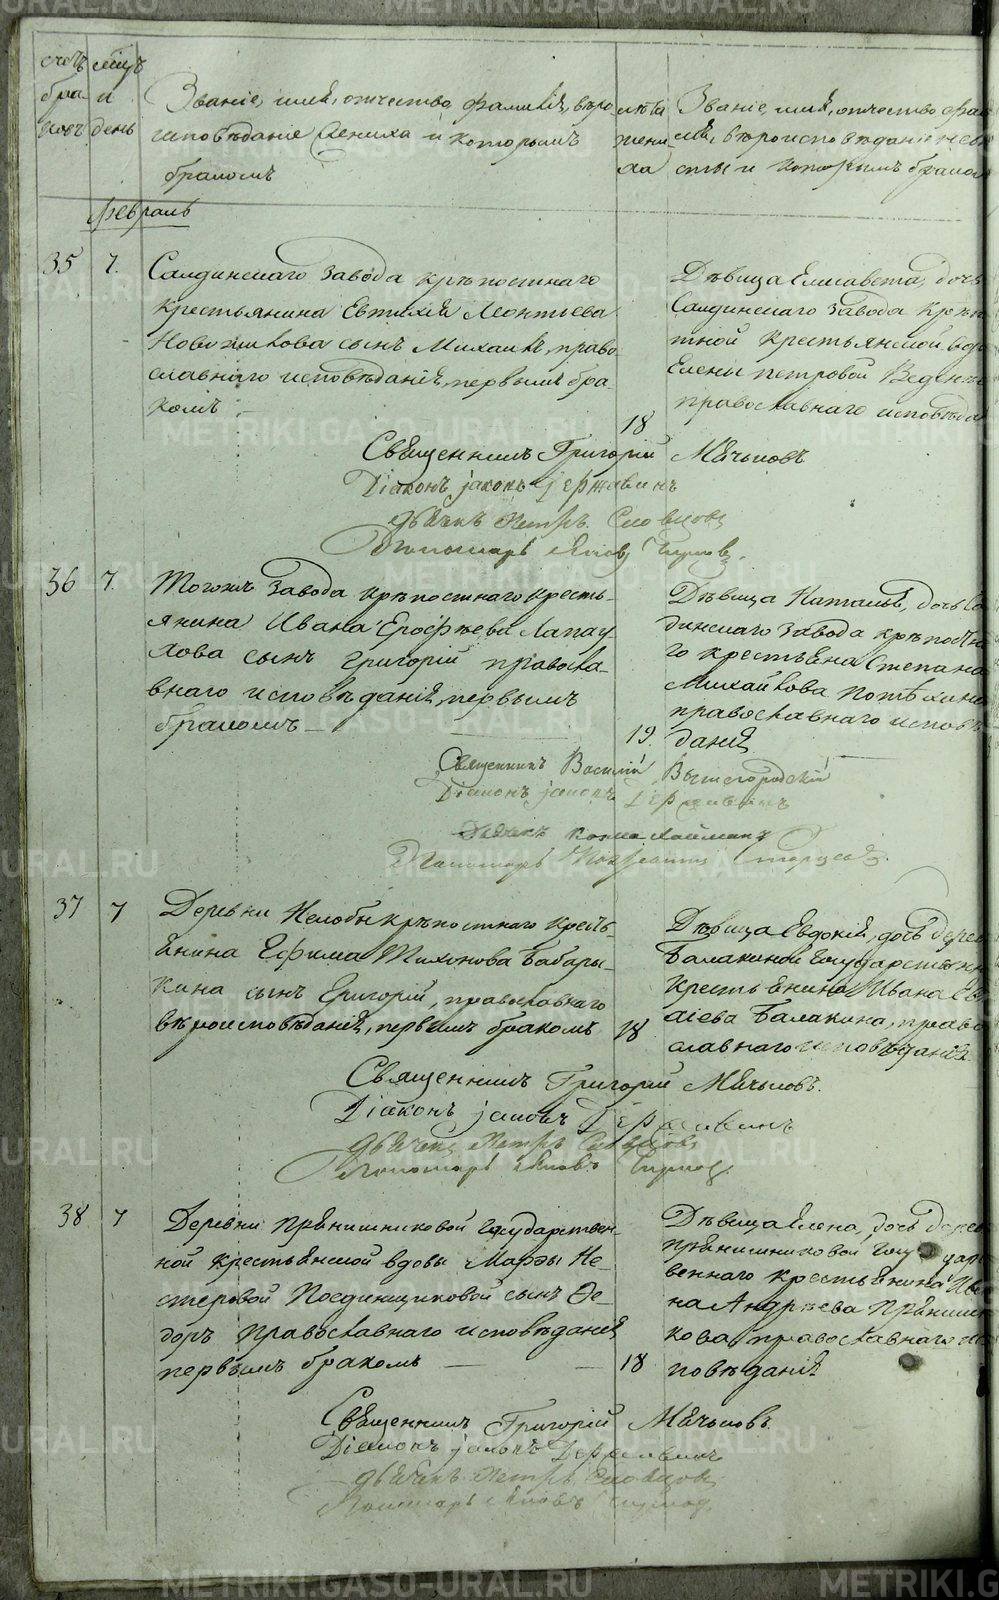 счетъ
бра
ковъ
мцъ
и
день
Званіе, имя, отчество, фамилія, вѣро
исповѣданіе жениха и которымъ
бракомъ
лѣта
жени
ха
Званіе, имя, отчество фам
лія, вѣроисповѣданіе невѣ
сты и которымъ браком
Февраль
35
7.
Салдинскаго завода крѣпостнаго
крестьянина Евтихія Леонтьева
Новожилова сынъ Михаилъ, право
славнаго исповѣданія, первымъ бра-
комъ
18
Дѣвица Елисавета, дочь
Салдинскаго завода крѣпо
тной крестьянской вдо
Елены Петровой
православнаго исповѣда
Священникъ Григорій Мячьковъ
Діаконъ Іаковъ Державинъ
Дьячекъ Петръ Словцовъ
Пономарь Яковъ
36
7.
Тогожъ завода крѣпостнаго кресть-
янина Ивана Ерофѣева Лапау
хова сынъ Григорій правосла-
внаго исповѣданія, первымъ
бракомъ
19.
Дѣвица Наталья, дочь Са
динскаго завода крѣпостна
го крестьяна Степана
Михайлова Потѣхина
православнаго исповѣ
данія
Священникъ Василій Вышегородскій
Діаконъ Іаковъ Державинъ
Дьячекъ Козма
Пономарь
37
7
Деревни Нелобы крѣпостнаго кресть-
янина Ефима Тихонова Бабары-
кина сынъ Григорій, православнаго
вѣроисповѣданія, первымъ бракомъ
18
Дѣвица Евдокія, дочь дерев
Балакиной Государственн
крестьянина Ивана Ев
Балакина, право
славнаго исповѣданія
Священникъ Григорій Мячьковъ.
Діаконъ Іаковъ Державинъ
Дьячекъ Петръ Словцовъ
Пономарь Яковъ
38
7
Деревни Прянишниковой Государствен-
ной крестьянской вдовы Марѳы Не-
стеровой Поединщиковой сынъ Ѳе-
доръ православнаго исповѣданія
первымъ бракомъ
18
Дѣвица Елена, дочь дерев
Прянишниковой Государс
веннаго крестьянина Ива
на Андрѣева Прянишн
кова православнаго ис
повѣданія
Священникъ Григорій Мячьковъ
Діаконъ Іаковъ Державинъ
Дьячекъ Петръ Словцовъ
Пономарь Яковъ
METRIKI.GASO-URAL.RU